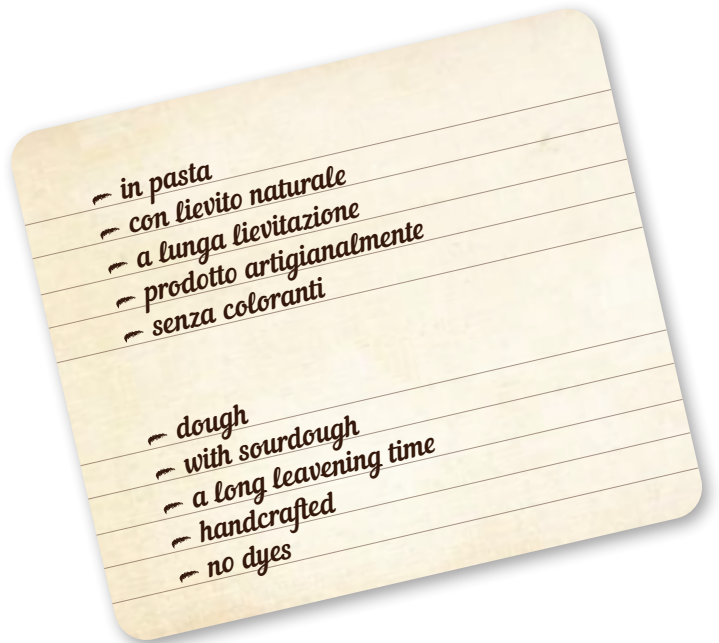 in pasta
con lievito naturale
a lunga lievitazione
prodotto artigianalmente
senza coloranti
dough
with sourdough
a long leavening time
handcrafted
no dyes